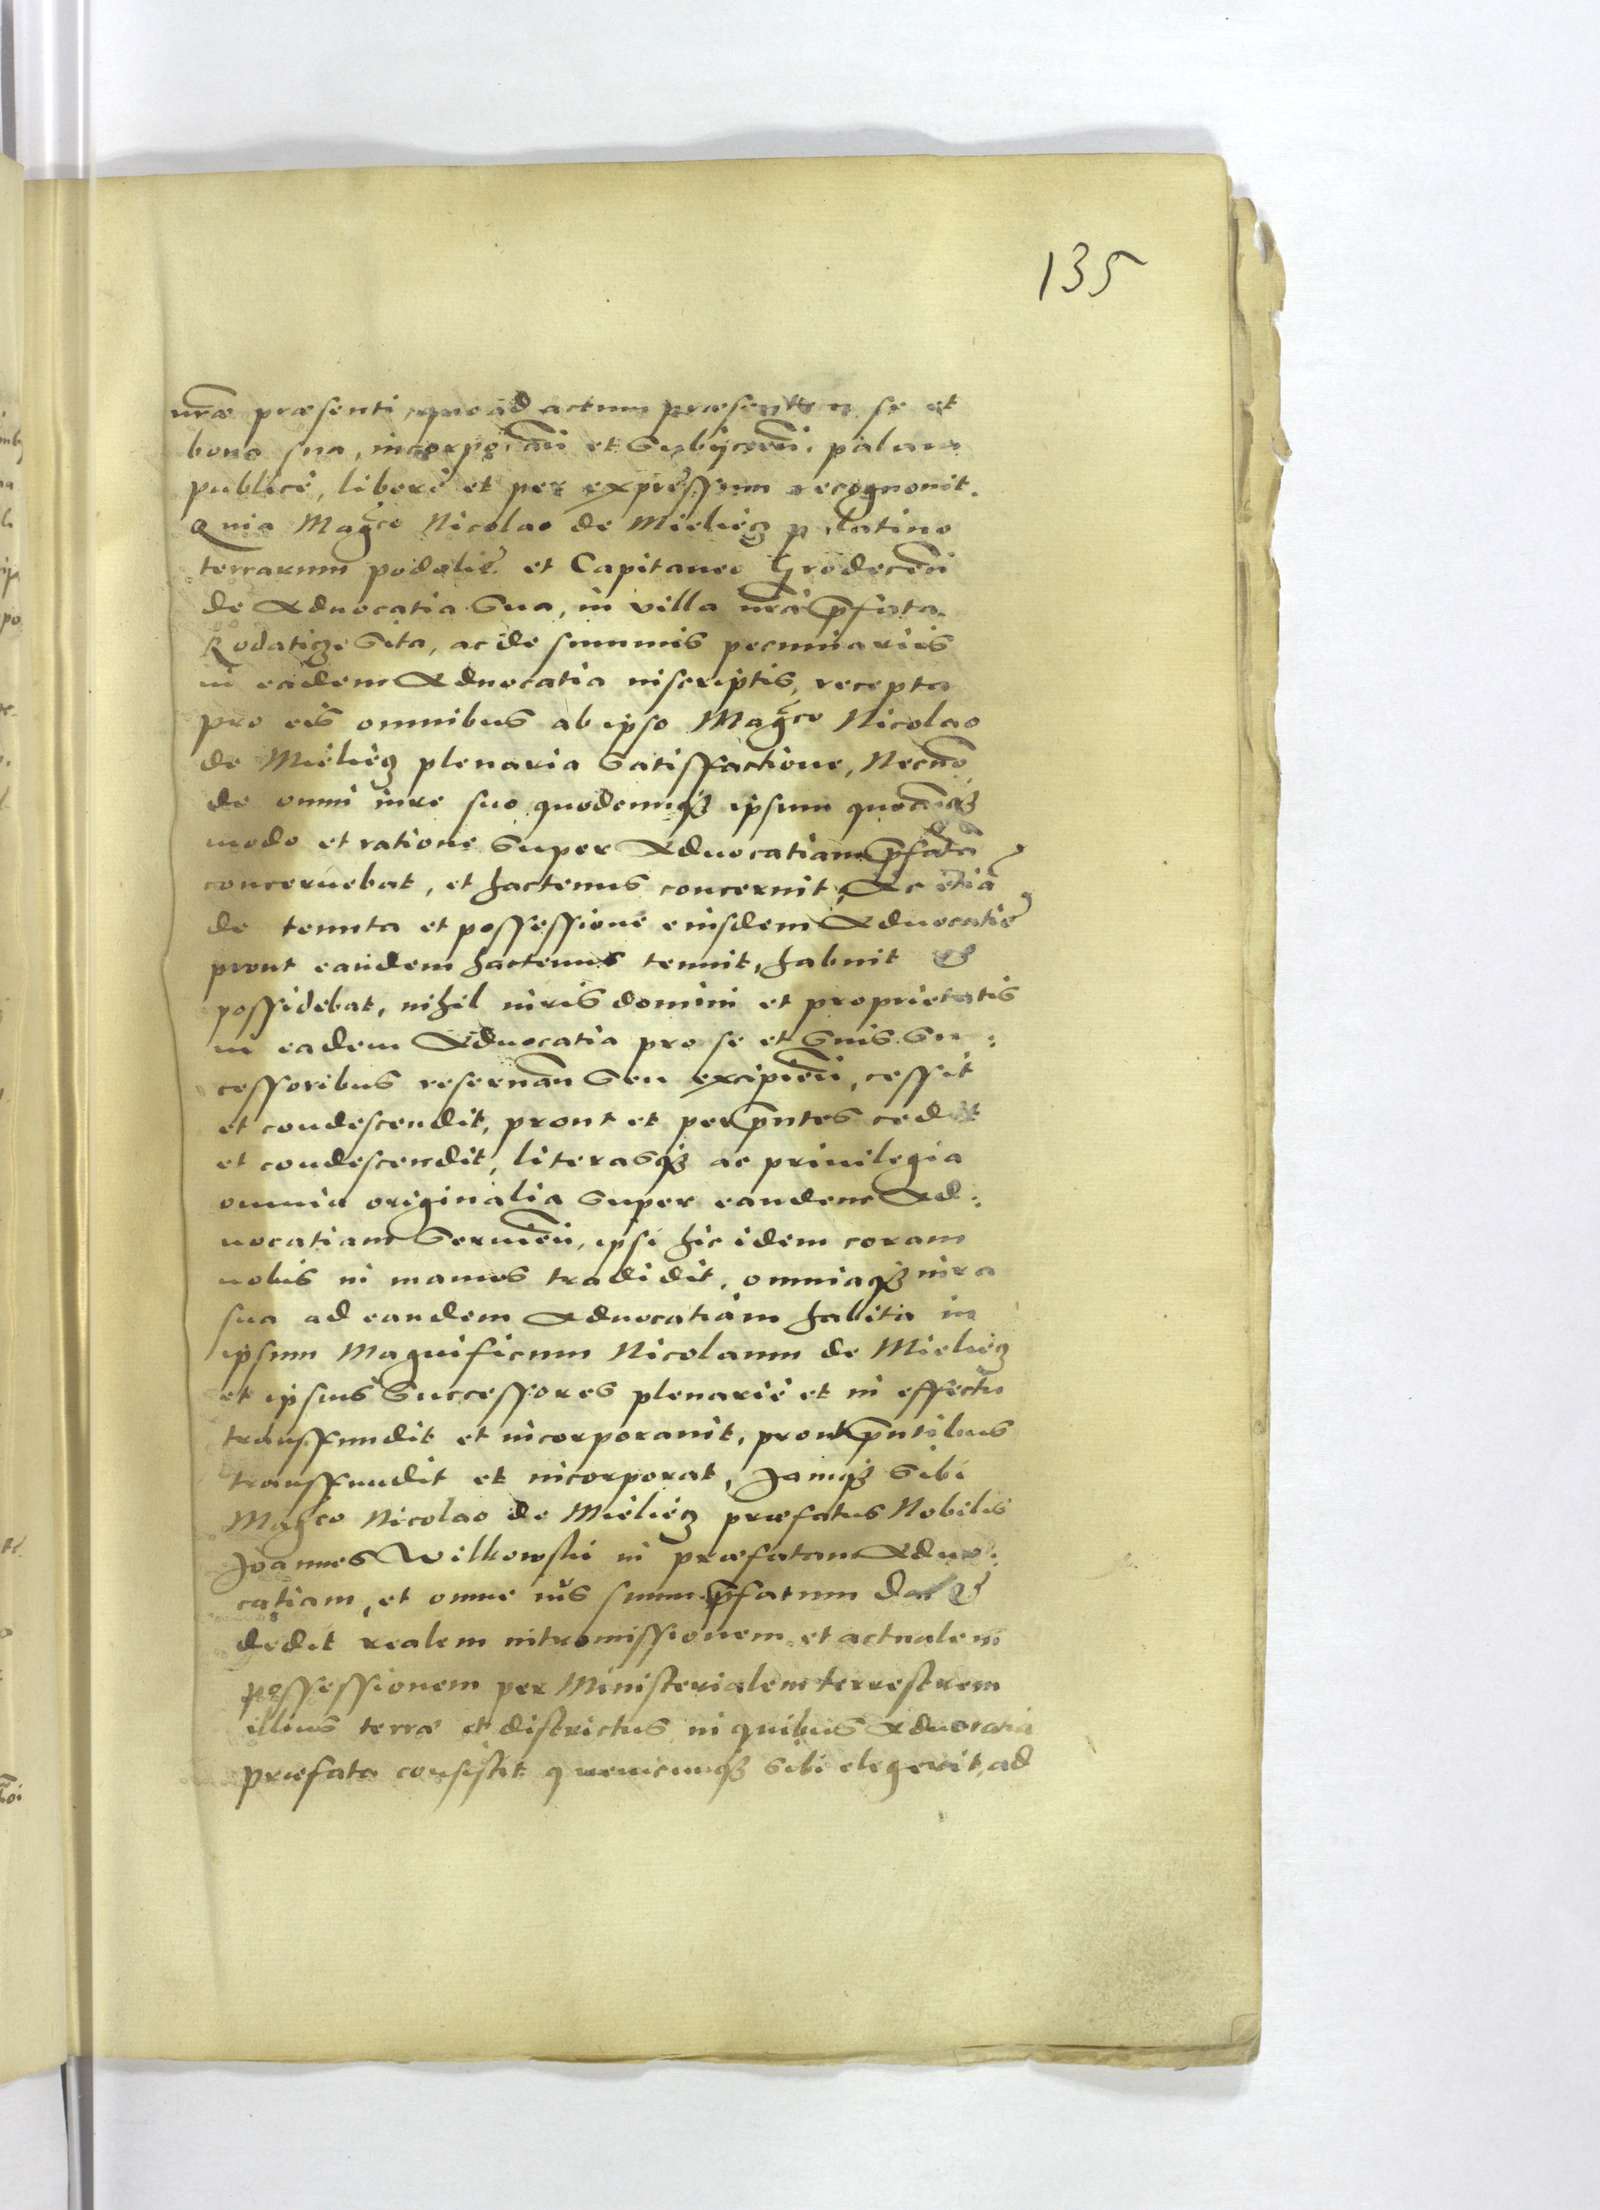 135
nrae praesenti, quoad actum praesentem se et
bona sua, incorporan et subijcien, palam
publicè, liberè et per expressum recognouit.
Quia Magco Nicolao de Mielięcz palatino
terrarum podolię et Capitaneo Grodecen
de Aduocatia sua, in villa nra pfata
Rodaticze sita, ac de summis pecuniariis
in eadem Aduocatia inscriptis, recepta
pro eis omnibus ab ipso Magco Nicolao
de Mielięcz plenaria satisfactione, Necno
de omni iure suo quodcunq3 ipsum quocunq3
modo et ratione super Aduocatiam pfata
concernebat, et hactenus concernit, Ac etia
de tenuta et possessione eiusdem Aduocatię
prout eandem hactenus tenuit, habuit &
possidebat, nihil iuris dominii et proprietatis
in eadem Aduocatia pro se et suis suc:
cessoribus reseruan seu excipien, cessit
et condescendit, prout et per pntes cedit
et condescendit, literasq3 ac priuilegia
omnia originalia super eandem Ad:
uocatiam seruien, ipse hic idem coram
nobis in manus tradidit, omniaq3 iura
sua ad eandem Aduocatiam habita in
ipsum Magnificum Nicolaum de Mielięcz
et ipsius successores plenariè et in effectu
transfundit et incorporauit, prout pntibus
transfundit et incorporat, Jamq3 sibi
Magco Nicolao de Mielięcz praefatus Nobilis
Joannes Wilkowski in praefatam Aduo:
catiam, et omne ius suum pfatum dat &
dedit realem intromissionem et actualem
possessionem per Ministerialem terrestrem
illius terrae et districtus in quibus Aduocatia
praefata consistit quemcunq3 sibi elegerit, ad